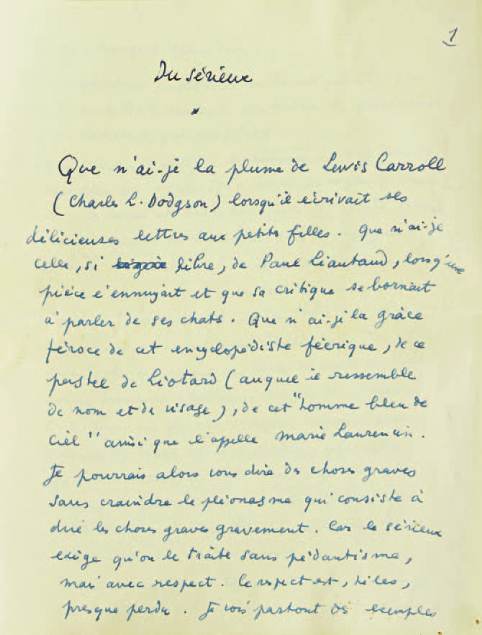 1
Du sérieux
*
Que n'ai-je la plume de Lewis Carroll
(Charles L. Dodgson) lorsqu'il écrivait ses
délicieuses lettres aux petits filles. Que n'ai-je
celle, si libre, de Paul Léautaud, lorsqu'une
pièce l'ennuyait et que sa critique se bornait
à parler de ses chats. Que n'ai-je la grâce
féroce de cet encyclopédiste féerique, de ce
pastel de Liotard (auquel il ressemble
de nom et de visage), de cet "homme bleu de
ciel" ainsi que l'appelle Marie Laurencin.
Je pourrais alors vous dire des choses graves
sans craindre le pléonasme qui consiste à
dire les choses graves gravement. Car le sérieux
exige qu'on le traite sans pédantisme,
mais avec respect. Ce respect est, hélas,
presque perdu. Je vois partout des exemples